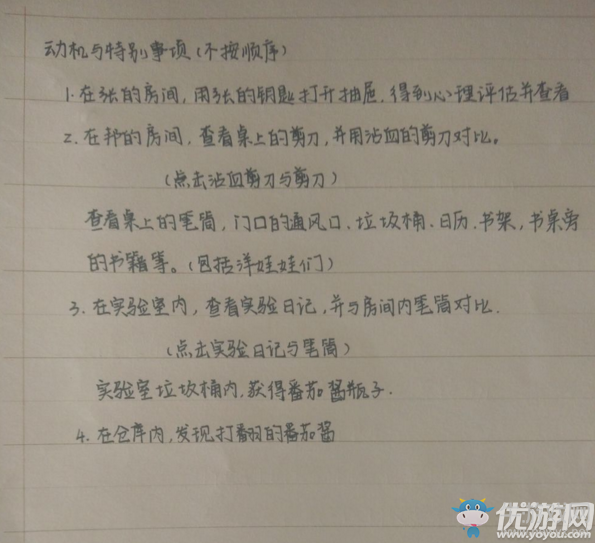 动机与特别事项(不按顺序)
1.在张的房间,用张的钥匙打开抽屉.得到心理评估并查看
2.在邦的房间,查看桌上的剪刀,并用沾血的剪刀对比。
(点击沾血剪刀与剪刀)
查看桌上的笔筒,门口的通风口、垃圾桶、日历、书架,书桌旁
的书籍等。(包括洋娃娃们)
3.在实验室内,查看实验日记,并与房间内笔筒对比.
(点击实验日记与笔筒)
实验室垃圾桶内,获得番茄酱瓶子.
4.在仓库内,发现打翻的番茄酱
优游网
www.yoyou.com